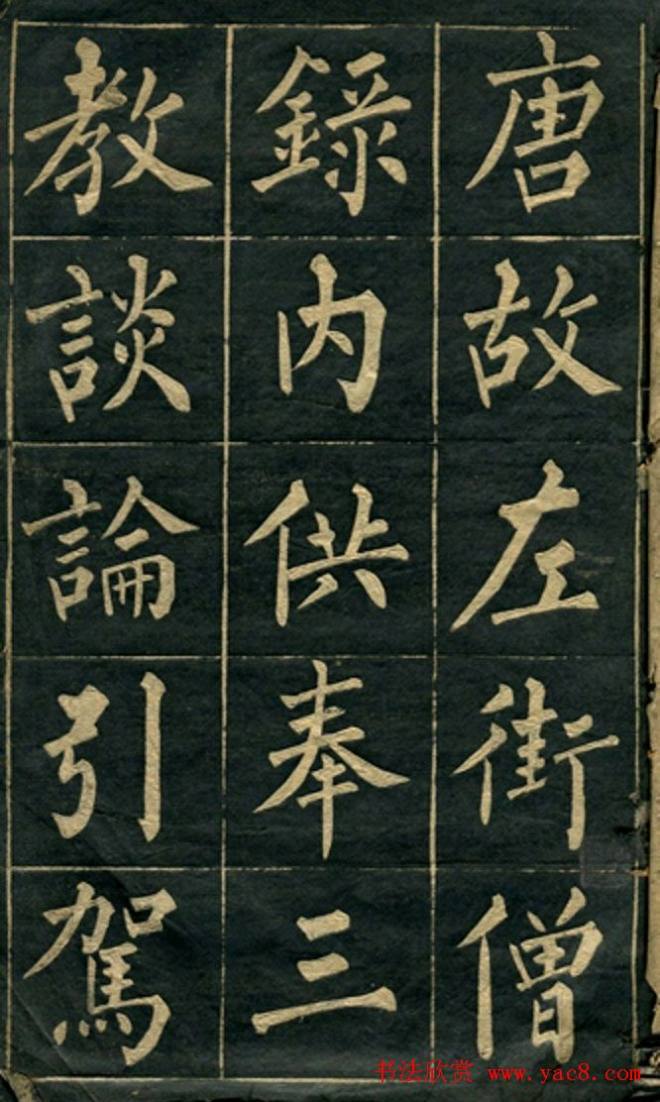 唐故左街僧
錄内供奉三
教談論引駕
书法欣赏 www.yac8.com